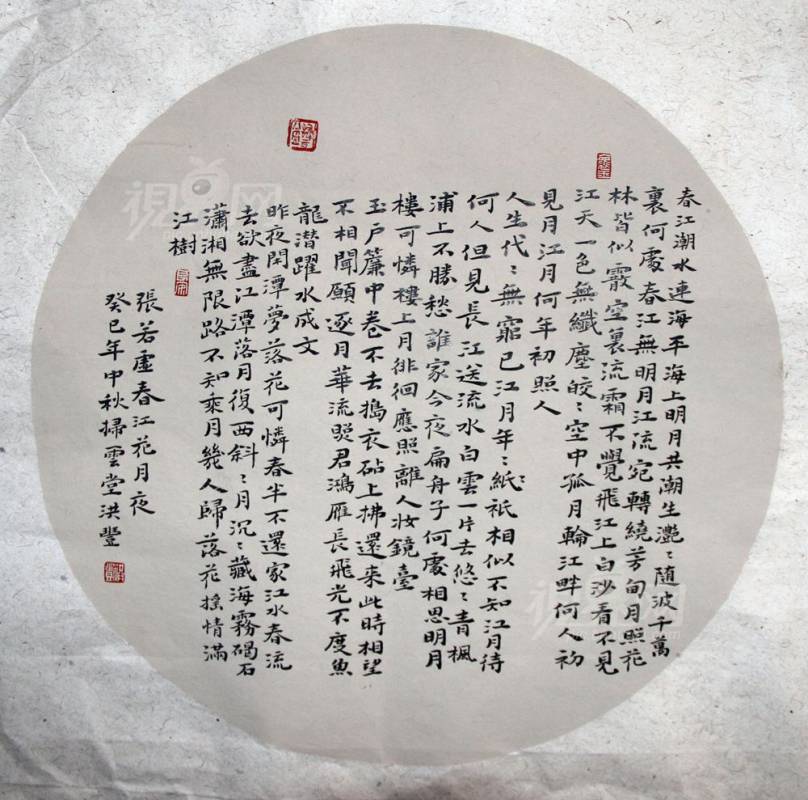 春江潮水連海平海上明月共潮生灧〻隨波千萬
裏何處春江無明月江流宛轉繞芳甸月照花
林皆似霰空裏流霜不覺飛江上白沙看不見
江天一色無纖塵皎〻空中孤月輪江畔何人初
見月江月何年初照人
人生代〻無窮已江月年〻紙祇相似不知江月待
何人但見長江送流水白雲一片去悠〻青楓
浦上不勝愁誰家今夜扁舟子何處相思明月
樓可憐樓上月徘徊應照離人妝鏡臺
玉戶簾中卷不去搗衣砧上拂還來此時相望
不相聞願逐月華流照君鴻雁長飛光不度魚
龍潛躍水成文
昨夜閑潭夢落花可憐春半不還家江水春流
去欲盡江潭落月復西斜〻月沉〻藏海霧碣石
瀟湘無限路不知乘月幾人歸落花搖情滿
江樹
張若虛春江花月夜
癸巳年中秋掃雲堂洪豐